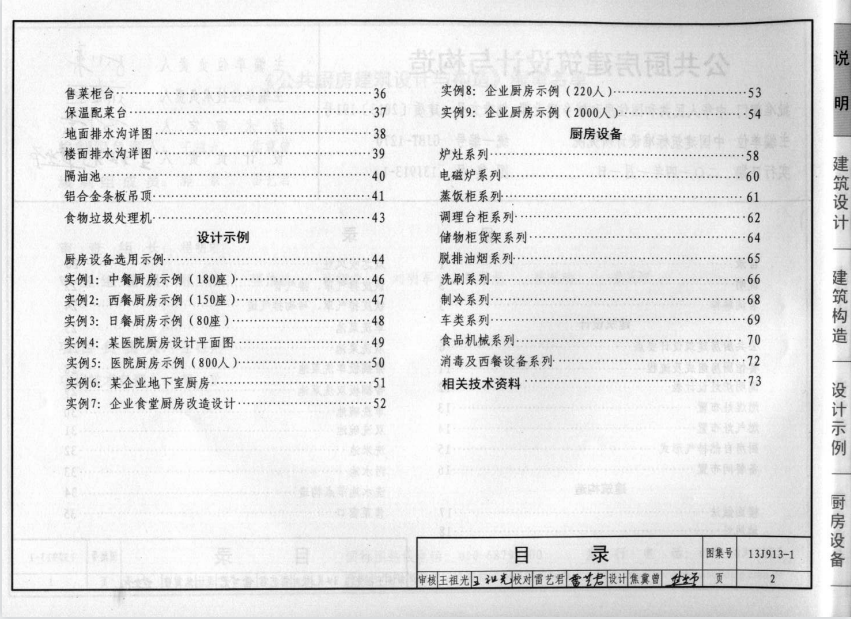 售菜柜台 36
保温配菜台 37
地面排水沟详图 38
楼面排水沟详图 39
隔油池 40
铝合金条板吊顶 41
食物垃圾处理机 43
设计示例
厨房设备选用示例 44
实例1: 中餐厨房示例 (180座) 45
实例2: 西餐厨房示例 (150座) 47
实例3: 日餐厨房示例 (80座) 48
实例4: 某医院厨房设计平面图 49
实例5: 医院厨房示例 (800人) 50
实例6: 某企业地下室厨房 51
实例7: 企业食堂厨房改造设计 52
实例8: 企业厨房示例 (220人) 53
实例9: 企业厨房示例 (2000人) 54
厨房设备
炉灶系列 58
电磁炉系列 60
蒸饭柜系列 61
调理台柜系列 62
储物柜货架系列 64
脱排油烟系列 65
洗刷系列 66
制冷系列 68
车类系列 69
食品机械系列 70
消毒及西餐设备系列 72
相关技术资料 73
目 录 图集号 13J913-1
审核 王祖光 校对 雷艺君 设计 焦冀曾 页 2
说明
建筑设计
建筑构造
设计示例
厨房设备